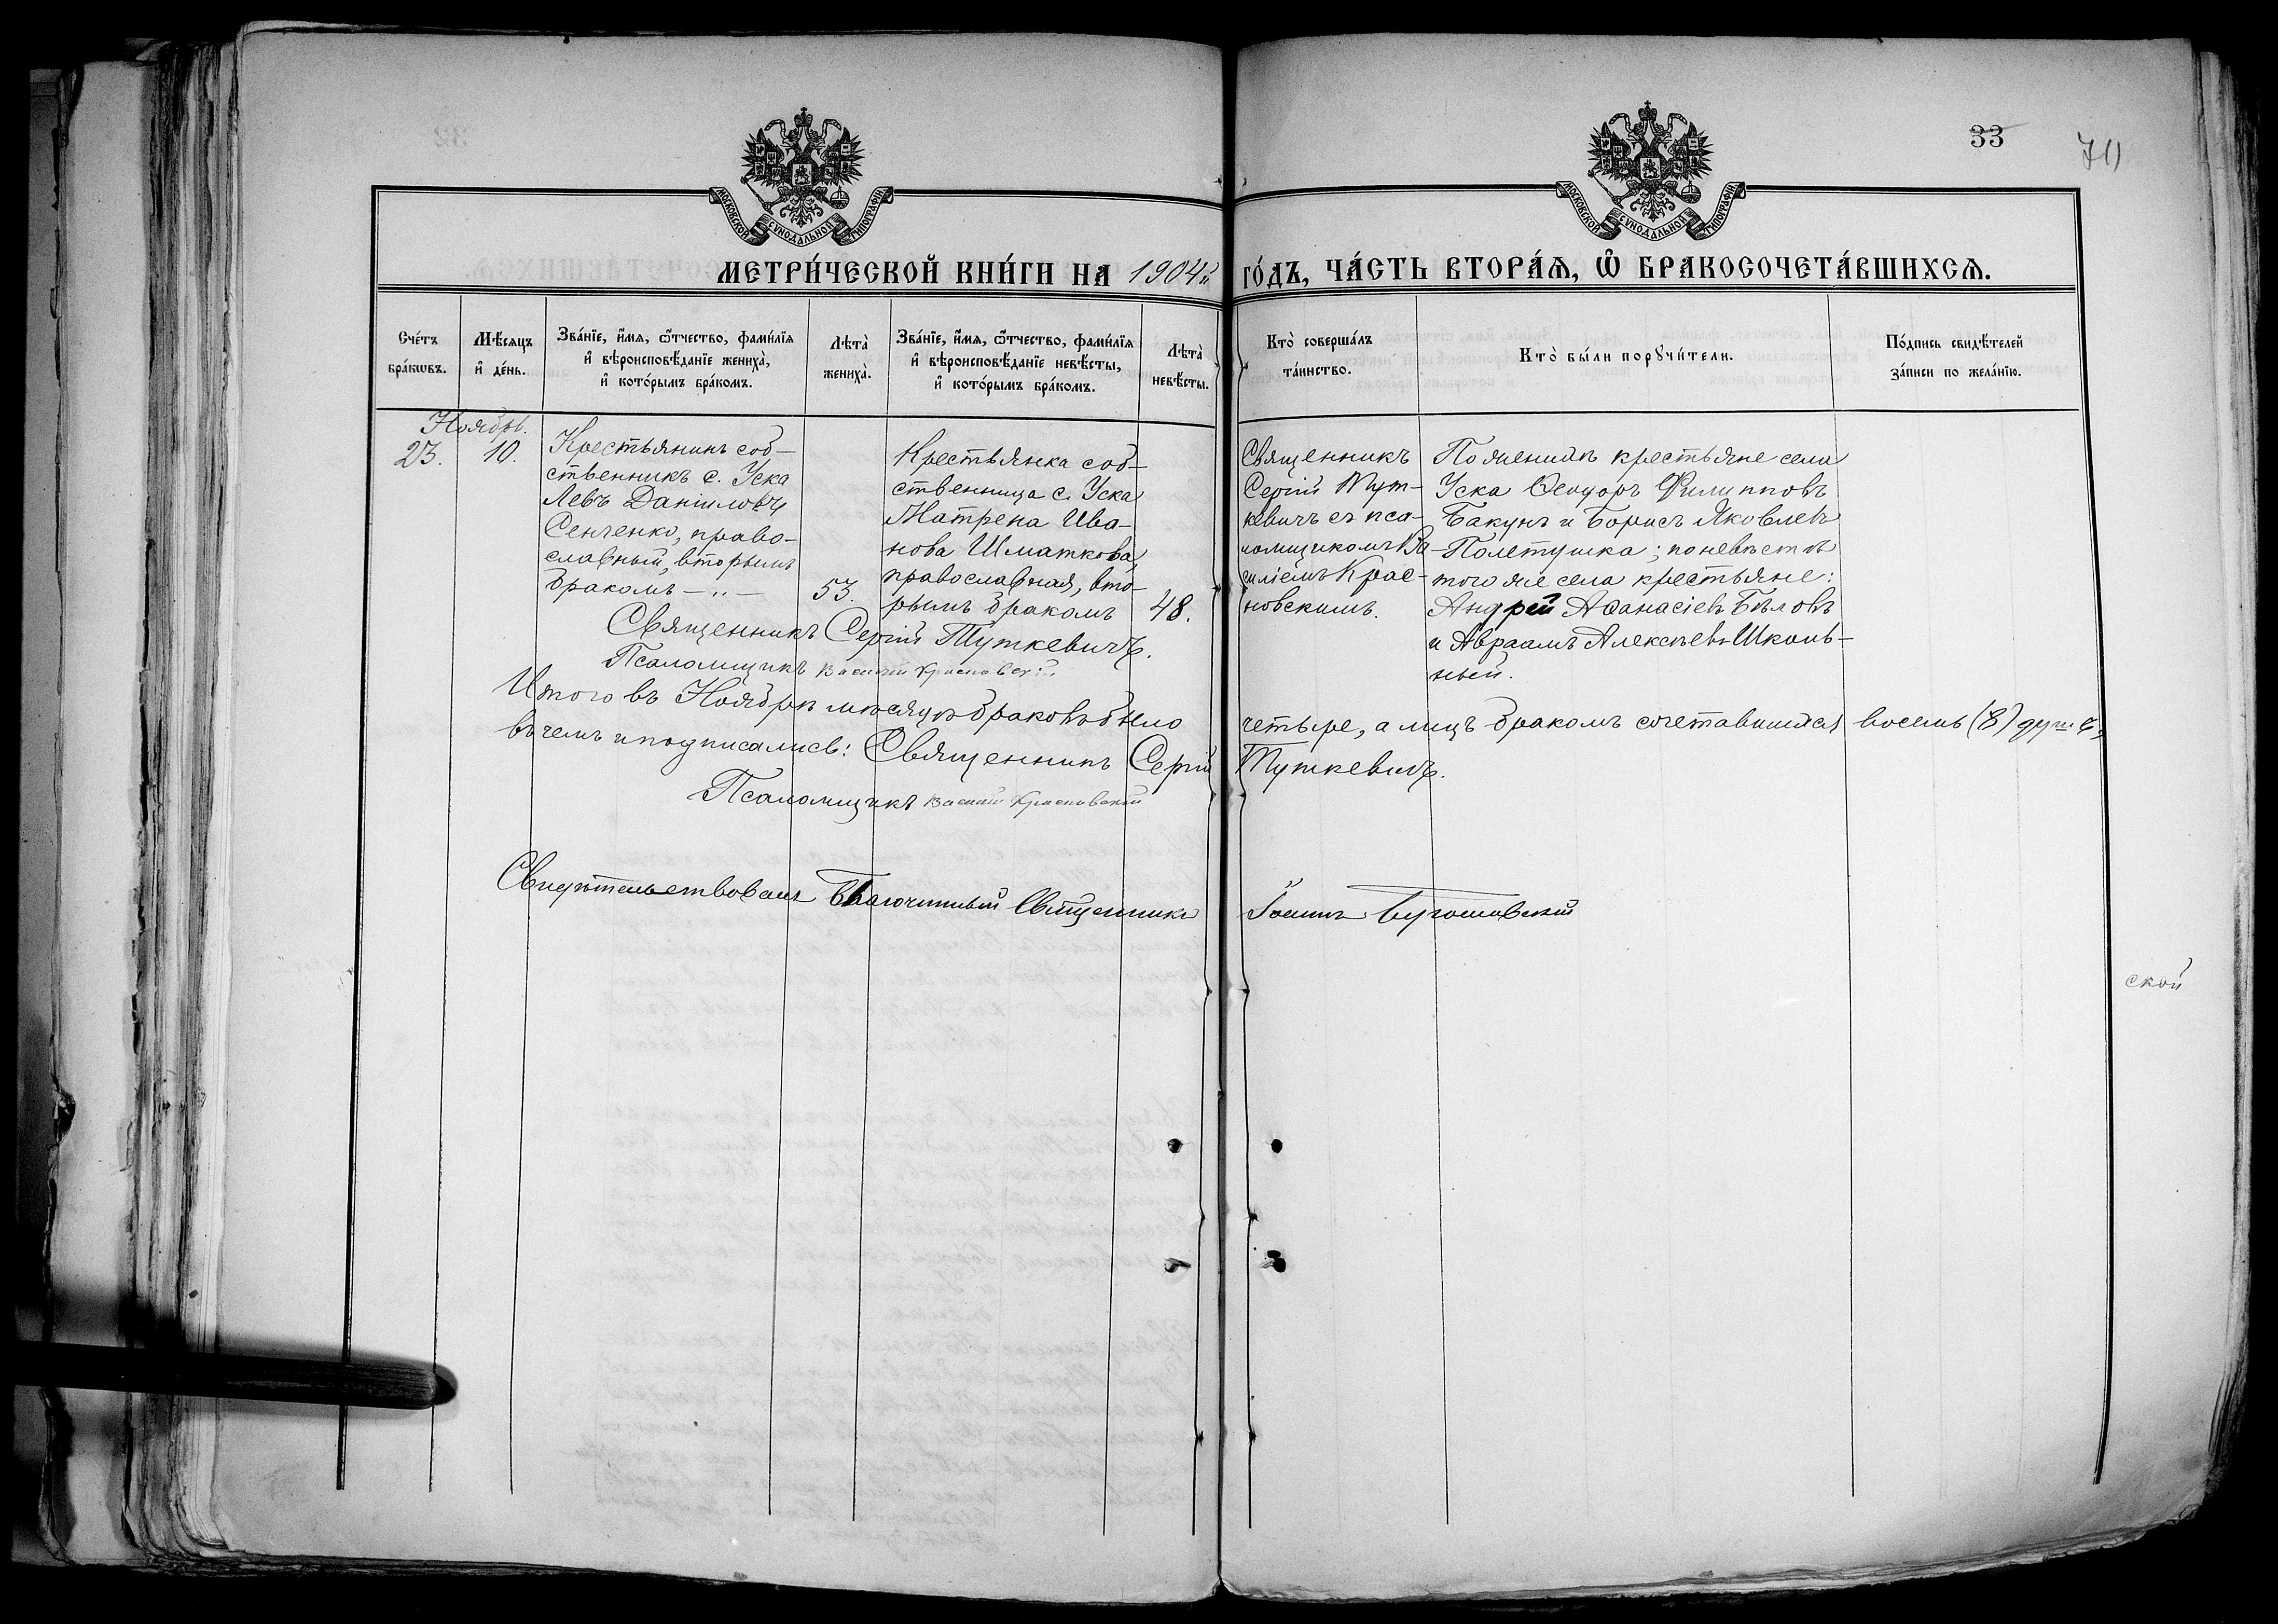 33
70
МОСКОВСКОЙ СѴНОДАЛЬНОЙ ТИПОГРАФІИ
МОСКОВСКОЙ СѴНОДАЛЬНОЙ ТИПОГРАФІИ
МЕТРИ́ЧЕСКОЙ КНИ́ГИ НА 1904й ГО́ДЪ, ЧА́СТЬ ВТОРА́Ѧ, Ѽ БРАКОСОЧЕТА́ВШИХСѦ.
Сче́тъ бра́кѡвъ.
Мѣ́сяцъ и҆ де́нь.
Зва́нїе, и҆́мѧ, ѻ҆́тчество, фами́лїѧ
и҆ вѣроисповѣ́данїе жениха̀,
и҆ кото́рымъ бра́комъ.
Лѣта̀ жениха̀.
Зва́нїе, и҆́мѧ, ѻ҆́тчество, фами́лїѧ
и҆ вѣроисповѣ́данїе невѣ́сты,
и҆ кото́рымъ бра́комъ.
Лѣта̀ невѣ́сты.
Кто̀ соверша́лъ
та́инство.
Кто̀ бы́ли порꙋчи́тели.
По́дпись свидѣ́телей
за́писи по жела́нїю.
Ноябрь.
23.
10.
Крестьянинъ соб-
ственникъ с. Уска
Левъ Даніиловъ
Сенченко, право-
славный, вторымъ
бракомъ — „ —
53.
Крестьянка соб-
ственница с. Уска
Матрена Ива-
нова Шматкова,
православная, вто-
рымъ бракомъ
48.
Священникъ
Сергій Тут-
кевичъ съ пса-
ломщикомъ Ва-
силіемъ Крас-
новскимъ.
По женихѣ крестьяне села
Уска Ѳеодоръ Филипповъ
Бакунъ и Борисъ Яковлевъ
Полетушка; по невѣстѣ
того же села крестьяне:
Андрей Аѳанасіевъ Бѣловъ
и Авраамъ Алексѣевъ Школь-
ный.
Священникъ Сергій Туткевичъ.
Псаломщикъ Василій Красновскій
Итого въ Ноябрѣ мѣсяцѣ браковъ было четыре, а лицъ бракомъ сочетавшихся восемь (8) душъ,
въ чемъ и подписались: Священникъ Сергій Туткевичъ.
Псаломщикъ Василій Красновскій
Свидѣтельствовалъ Благочинный Священникъ Іоаннъ
ской